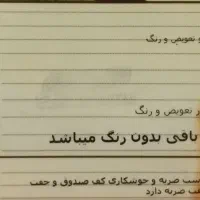 تعویض و رنگ
تعویض و رنگ
باقی بدون رنگ میباشد
ضربه و جوشکاری کف صندوق و جفت
ضربه دارد